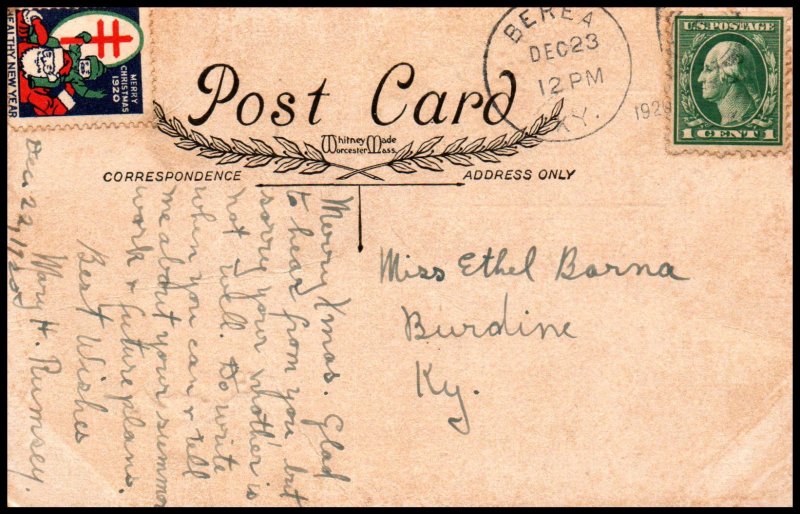 MERRY
CHRISTMAS
1920
HEALTHY NEW YEAR
Post Card
Whitney Made
Worcester Mass.
CORRESPONDENCE
ADDRESS ONLY
BEREA
DEC 23
12 PM
KY.
U.S. POSTAGE
1 CENT 1
Merry Xmas. Glad
to hear from you but
sorry your mother is
not well. Do write
when you can & tell
me about your summer
work & future plans.
Best Wishes
Mary H. Rumsey.
Dec 22, 1920
Miss Ethel Barna
Burdine
Ky.